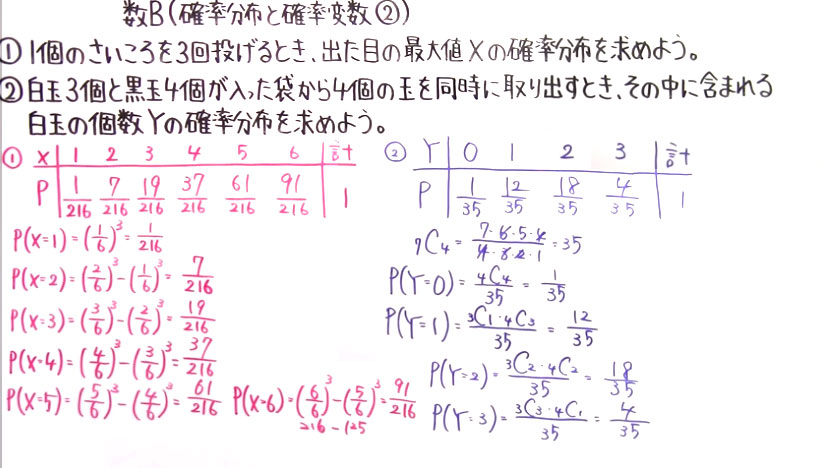 数B(確率分布と確率変数②)
①1個のさいころを3回投げるとき、出た目の最大値Xの確率分布を求めよう。
②白玉3個と黒玉4個が入った袋から4個の玉を同時に取り出すとき、その中に含まれる
白玉の個数Yの確率分布を求めよう。
① X 1 2 3 4 5 6 計
P 1/216 7/216 19/216 37/216 61/216 91/216 1
P(X=1)=(1/6)³=1/216
P(X=2)=(2/6)³-(1/6)³=7/216
P(X=3)=(3/6)³-(2/6)³=19/216
P(X=4)=(4/6)³-(3/6)³=37/216
P(X=5)=(5/6)³-(4/6)³=61/216
P(X=6)=(6/6)³-(5/6)³=91/216
216-125
② Y 0 1 2 3 計
P 1/35 12/35 18/35 4/35 1
₇C₄=7·6·5·4/4·3·2·1=35
P(Y=0)=₄C₄/35=1/35
P(Y=1)=₃C₁·₄C₃/35=12/35
P(Y=2)=₃C₂·₄C₂/35=18/35
P(Y=3)=₃C₃·₄C₁/35=4/35